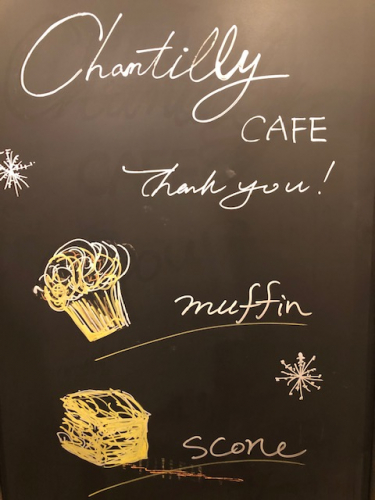 Chantilly
CAFE
Thank you!
muffin
scone